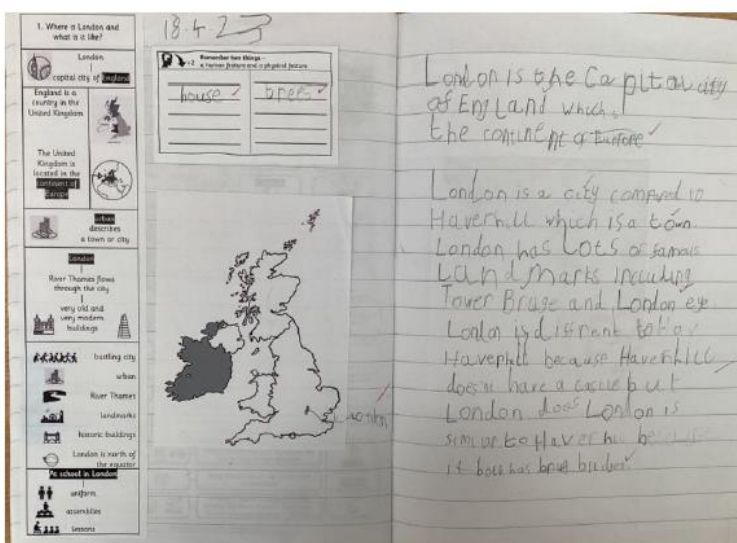 1. Where is London and
what is it like?
London
capital city of England
England is a
country in the
United Kingdom
The United
Kingdom is
located in the
continent of
Europe
urban
describes
a town or city
London
River Thames flows
through the city
very old and
very modern
buildings
bustling city
urban
River Thames
landmarks
historic buildings
London is north of
the equator
At school in London
uniform
assemblies
lessons
18.4.23
x2 Remember two things –
a human feature and a physical feature
house trees
London
London is the Capital city
of England which is
the continent of Europe
London is a city compared to
Haverhill which is a town.
London has Lots of famous
Land Marks including
Tower Brige and London eye
London is diffrent to
Haverhill because Haverhill
doesn't have a castle but
London does London is
similar to Haverhill because
it both has